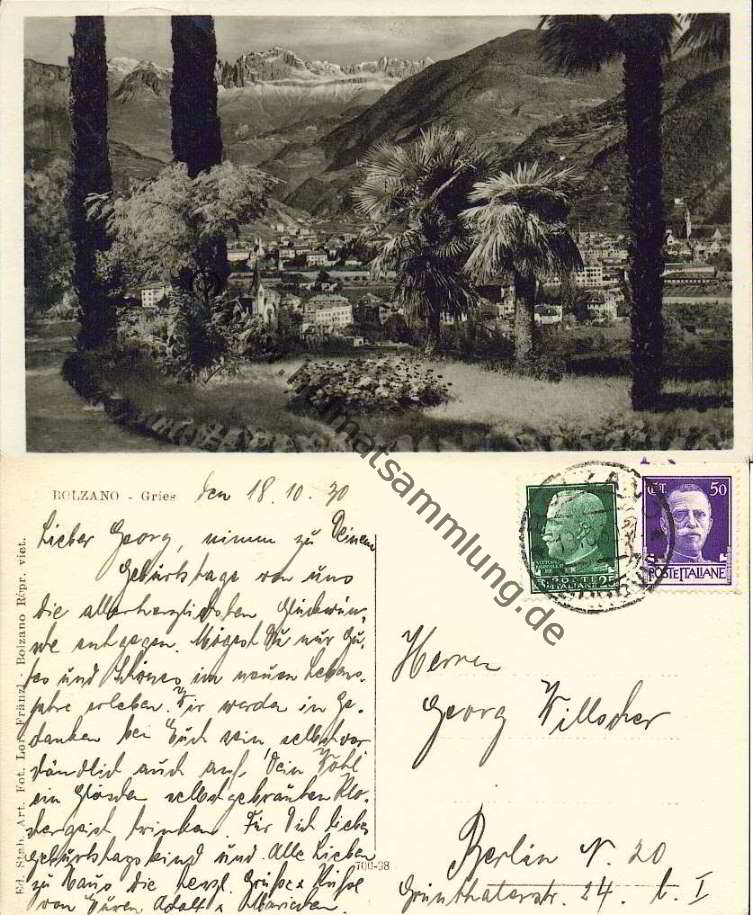 heimatsammlung.de
BOLZANO - Gries
den 18.10.30
Lieber Georg, nimm zu Deinem
Geburtstage von uns
die allerherzlichsten Glückwün-
sche entgegen. Mögest Du nur Gu-
tes und Schönes im neuen Lebens-
jahre erleben. Wir werden in Ge-
danken bei Euch sein, selbstver-
ständlich auch auf Dein Wohl
ein Gläschen selbstgebrauten Klo-
stergeist trinken. Für Dich liebes
Geburtstagskind und Alle Lieben
zu Haus die herzl. Grüße & Küsse
von Euren Adolf &
Ed. Stab. Art. Fot. Lor. Fränzl - Bolzano Ripr. viet.
700-38
POSTE ITALIANE
CT. 50
POSTE ITALIANE
Herrn
Georg Willscher
Berlin N. 20
Grünthalerstr. 24. b. I